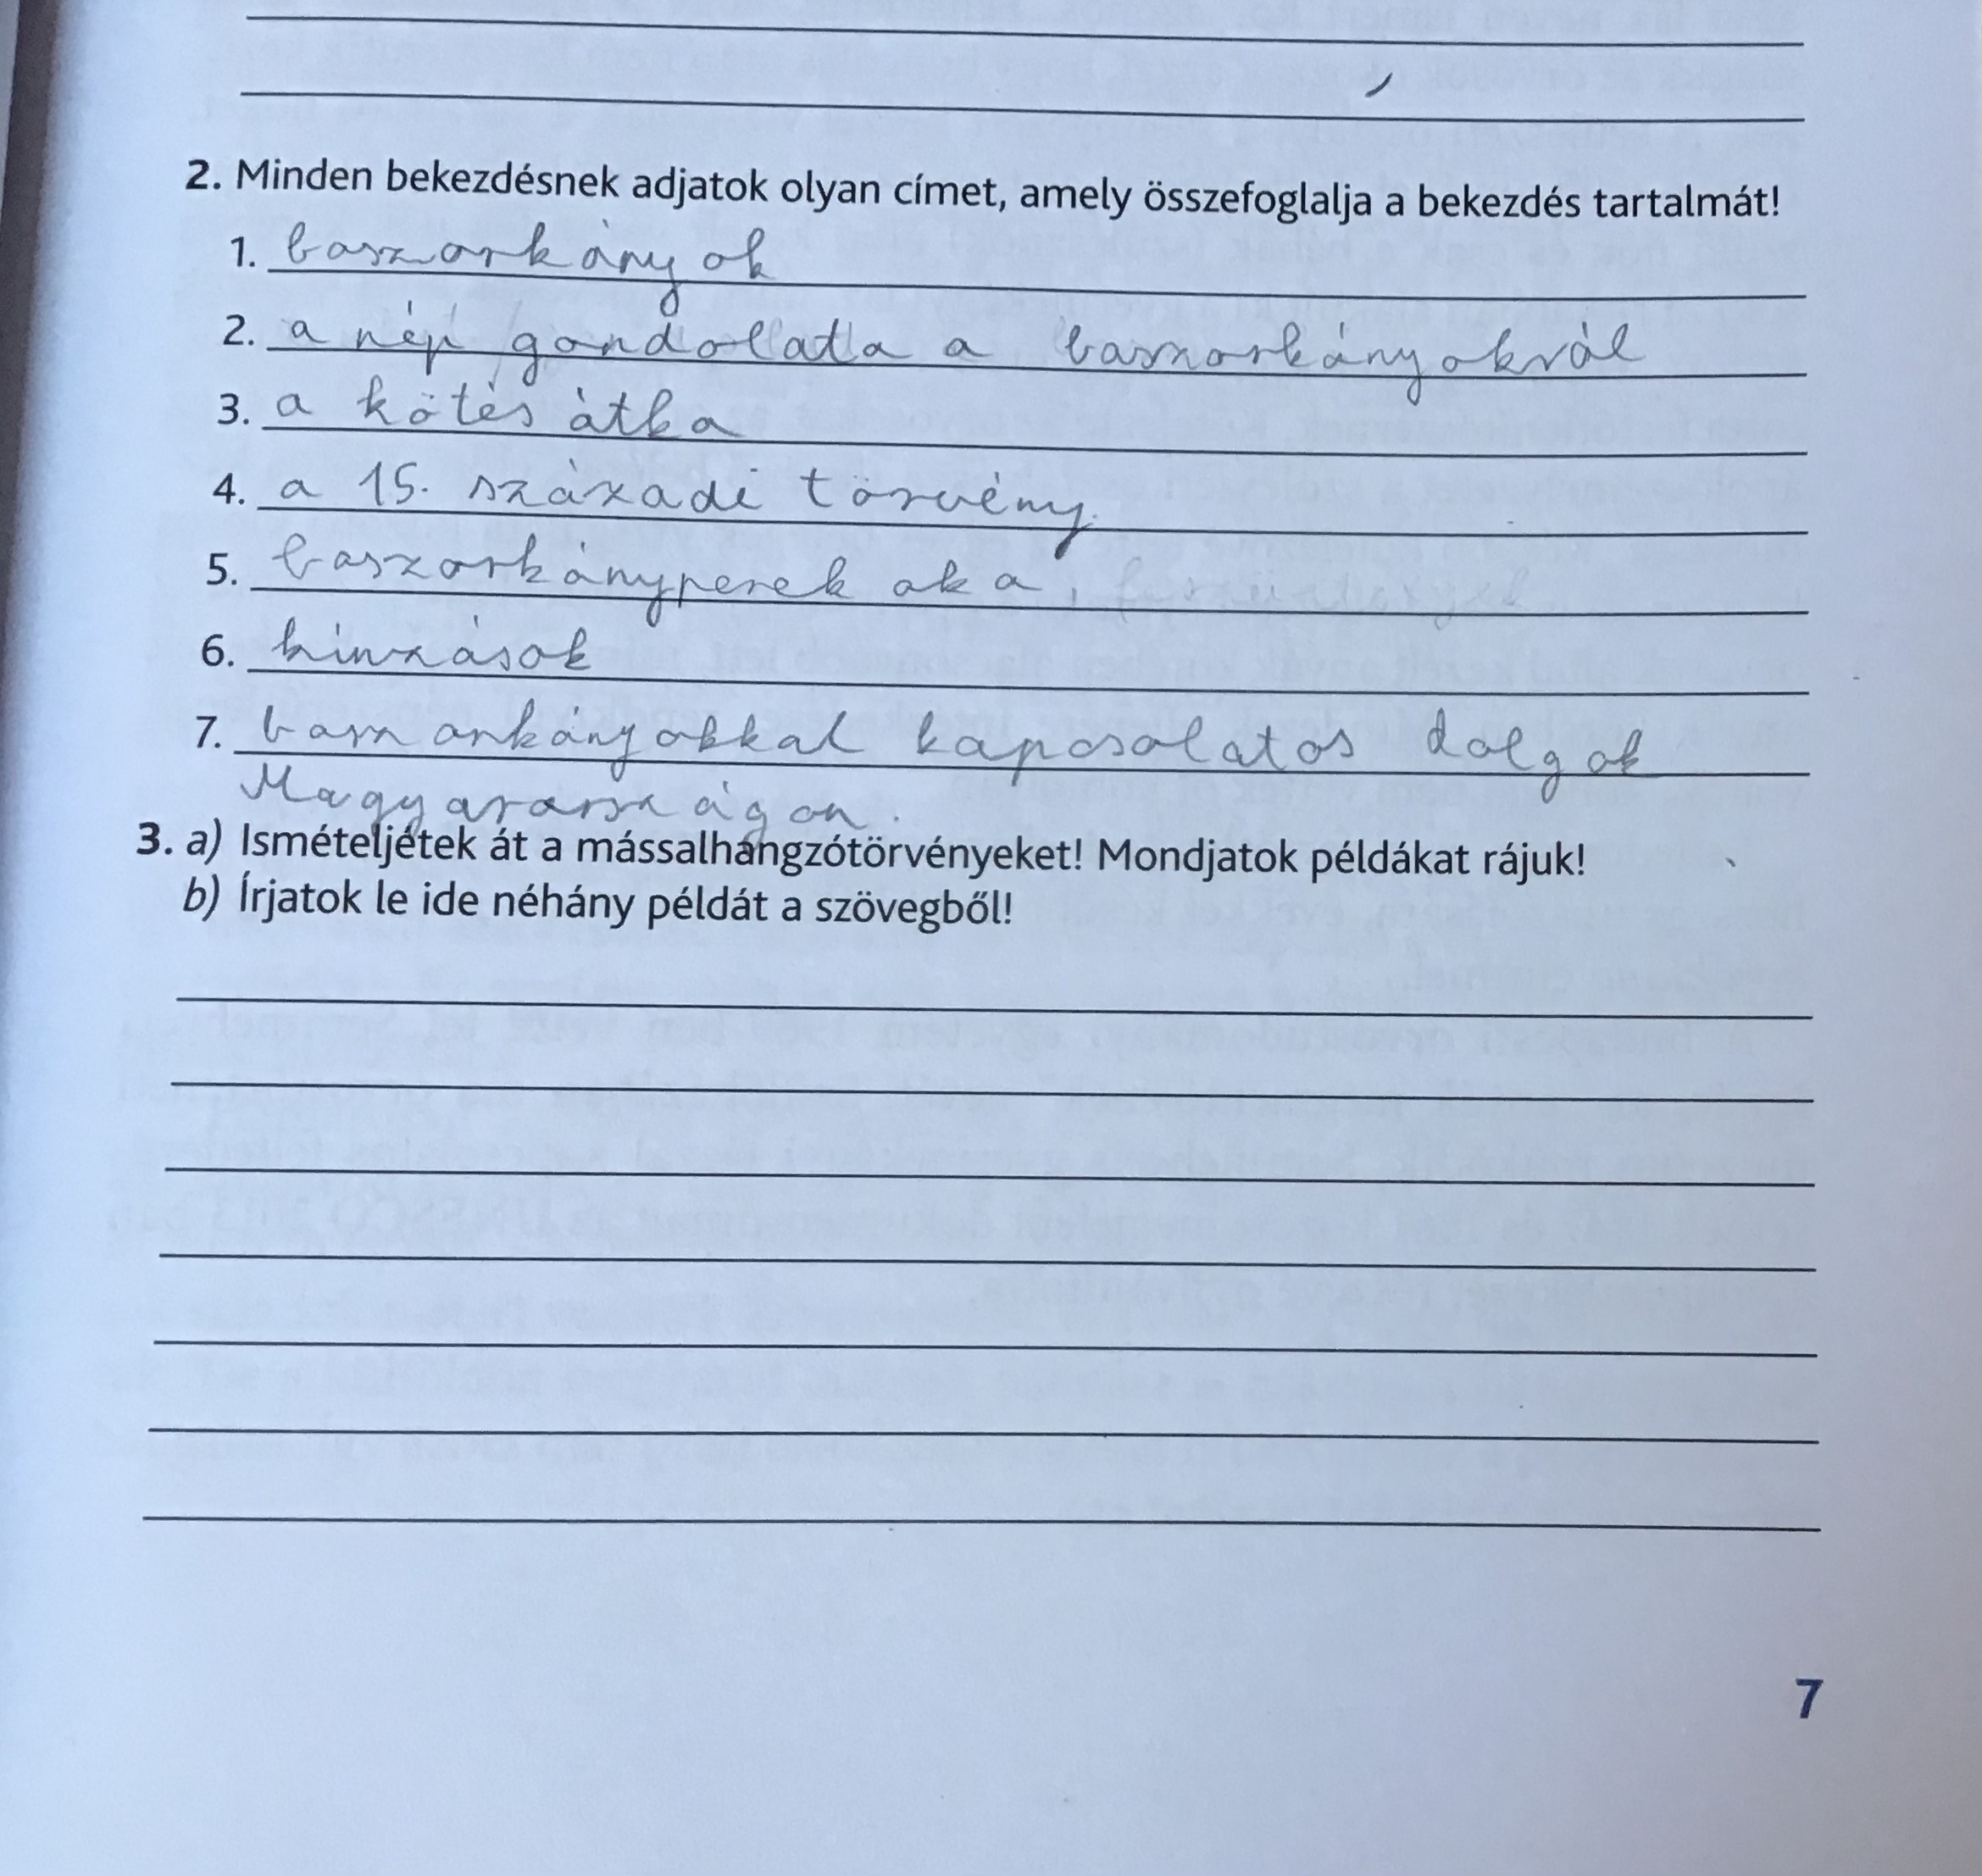 2. Minden bekezdésnek adjatok olyan címet, amely összefoglalja a bekezdés tartalmát!
1. baszorkányok
2. a nép gondolata a baszorkányokról
3. a kötés átka
4. a 15. századi törvény.
5. baszorkányperek oka,
6. kínzások
7. baszorkányokkal kapcsolatos dolgok
Magyarországon.
3. a) Ismételjétek át a mássalhangzótörvényeket! Mondjatok példákat rájuk!
b) Írjatok le ide néhány példát a szövegből!
7